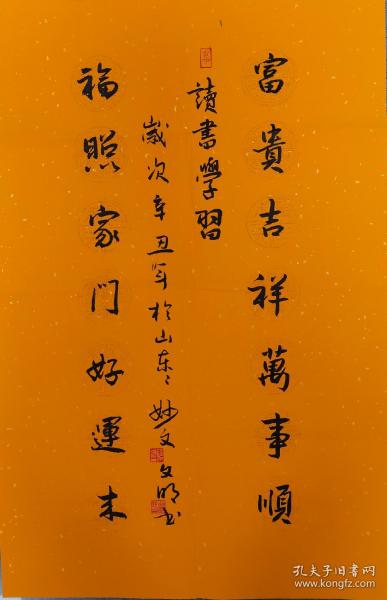 富貴吉祥萬事順
讀書學習
歲次辛丑年於山东
妙文
文明书
福照家门好運来
孔夫子旧书网